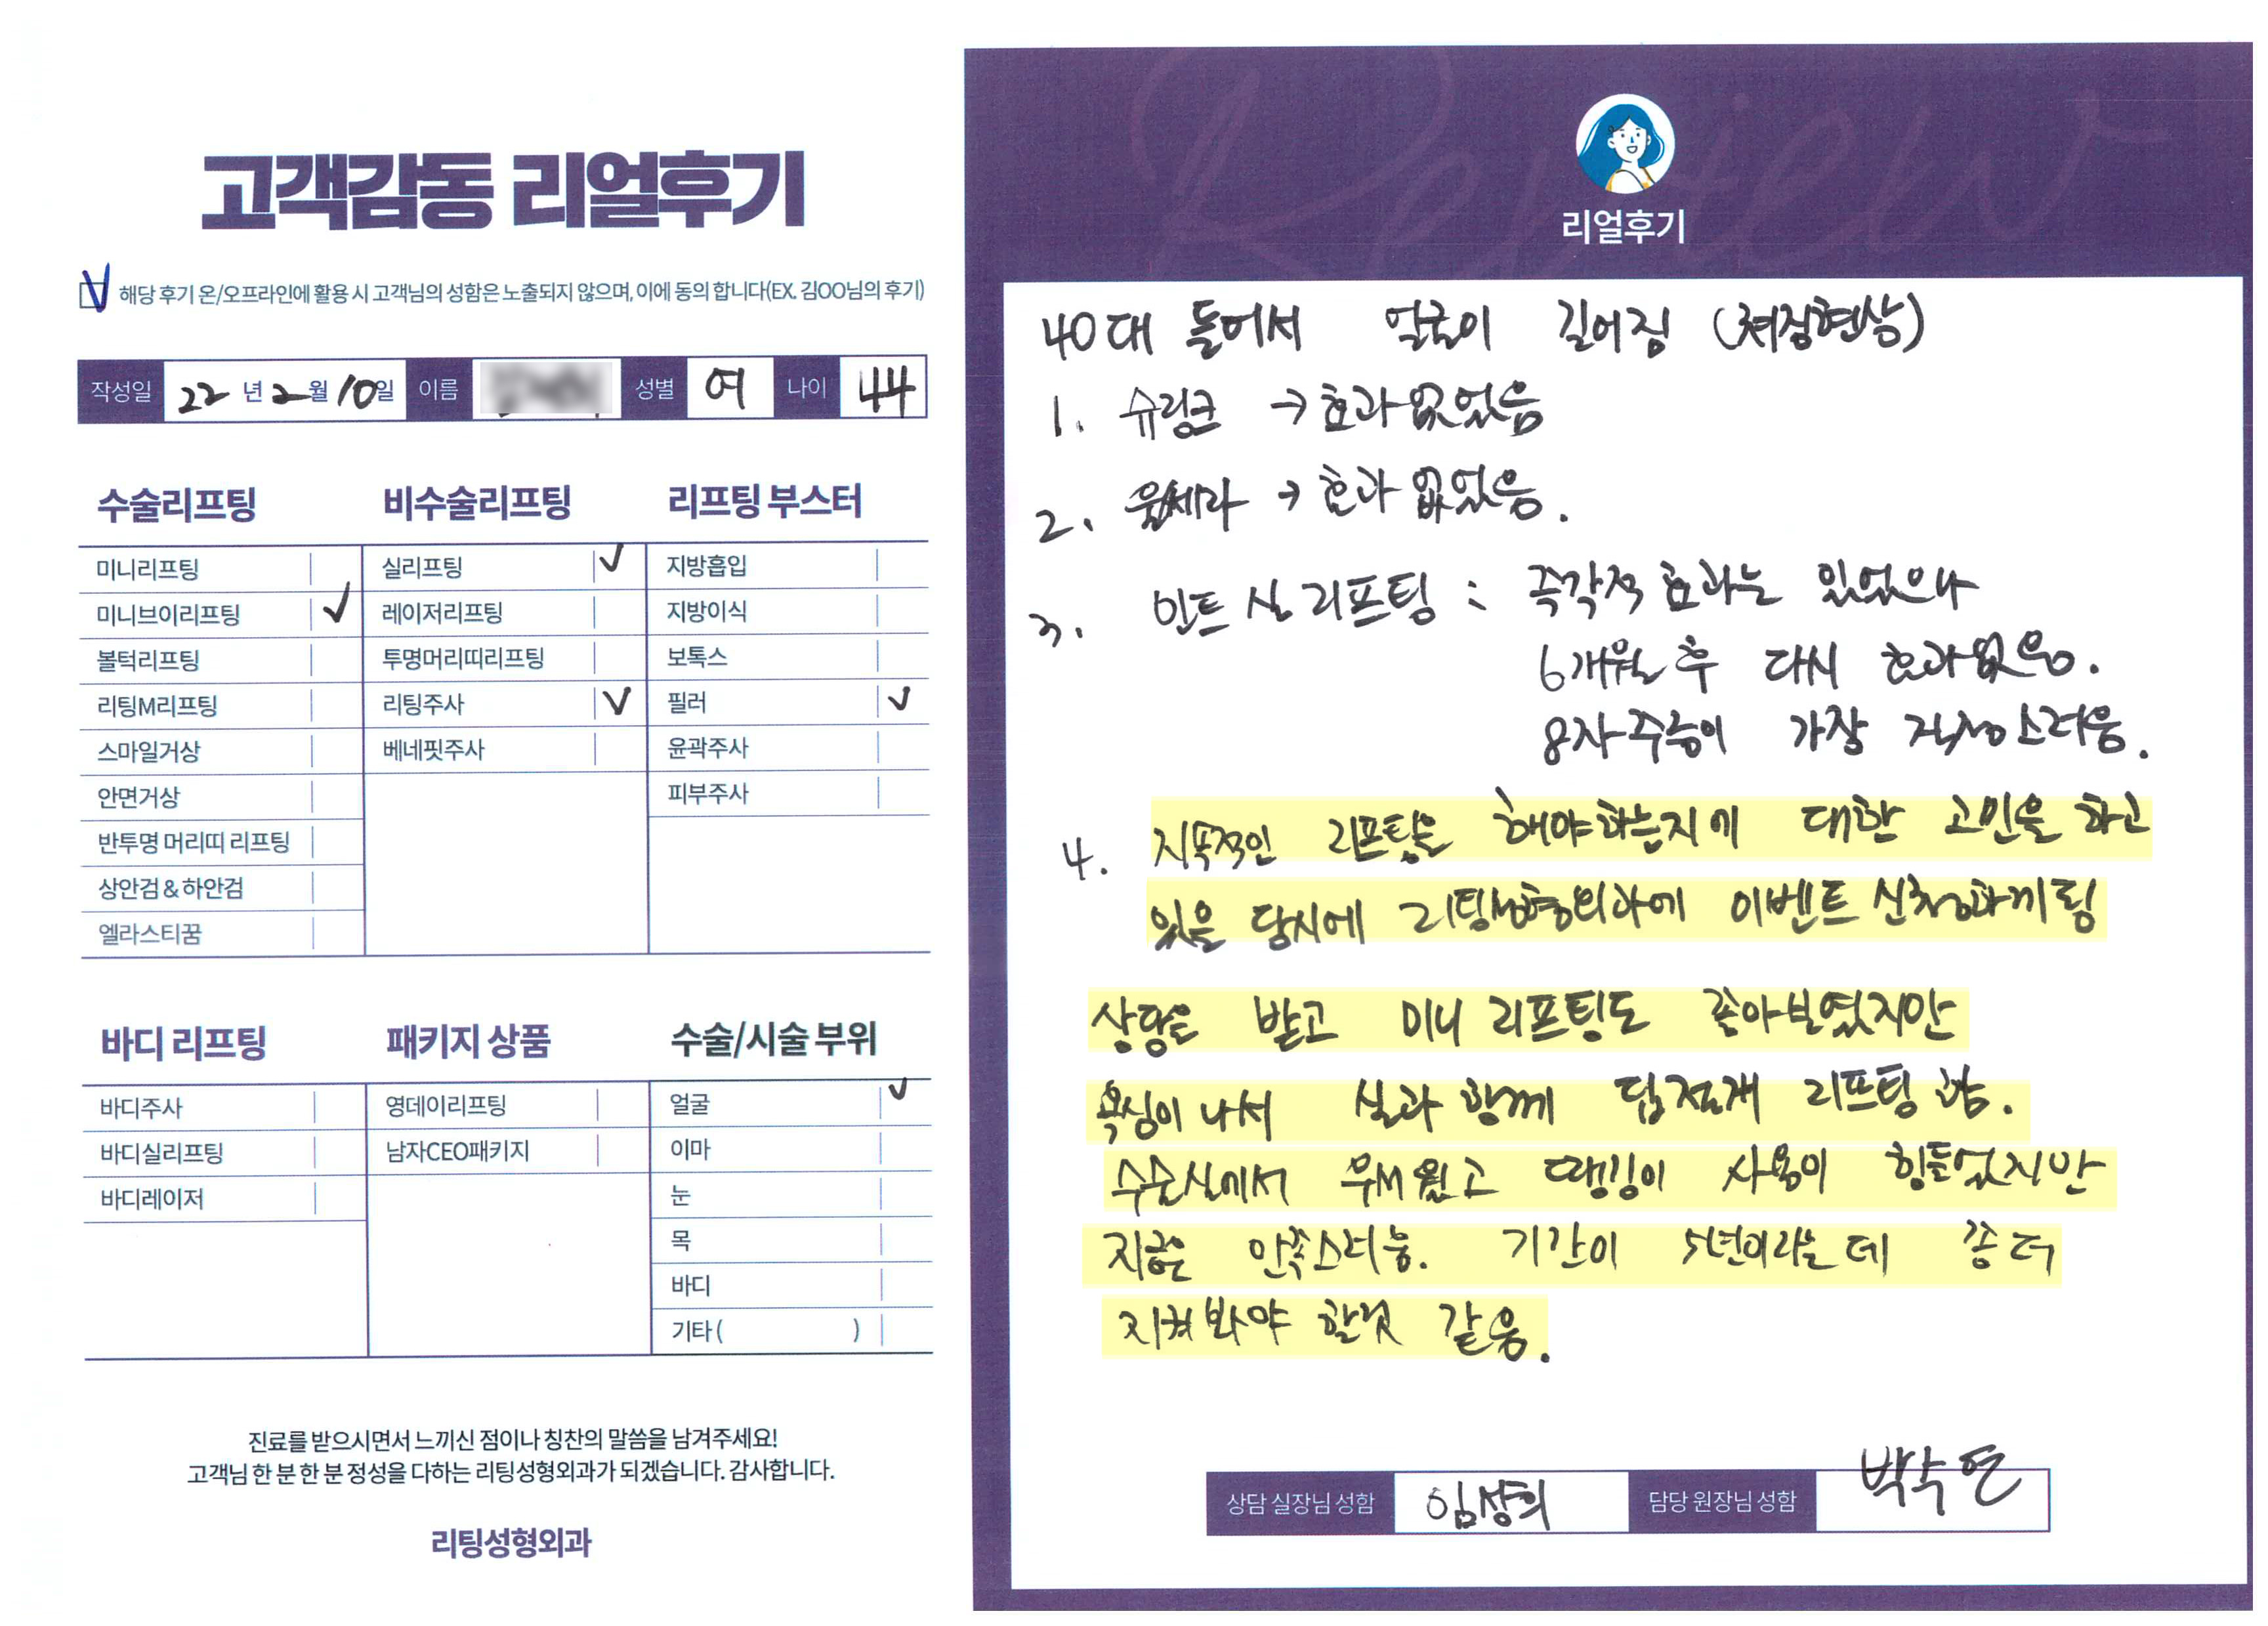 고객감동 리얼후기
해당 후기 온/오프라인에 활용 시 고객님의 성함은 노출되지 않으며, 이에 동의 합니다(EX. 김OO님의 후기)
작성일 22년 2월 10일 이름 성별 여 나이 44
수술리프팅
미니리프팅
미니브이리프팅
볼턱리프팅
리팅M리프팅
스마일거상
안면거상
반투명 머리띠 리프팅
상안검 & 하안검
엘라스티꿈
비수술리프팅
실리프팅
레이저리프팅
투명머리띠리프팅
리팅주사
베네핏주사
리프팅 부스터
지방흡입
지방이식
보톡스
필러
윤곽주사
피부주사
바디 리프팅
바디주사
바디실리프팅
바디레이저
패키지 상품
영데이리프팅
남자CEO패키지
수술/시술 부위
얼굴
이마
눈
목
바디
기타 ( )
진료를 받으시면서 느끼신 점이나 칭찬의 말씀을 남겨주세요!
고객님 한 분 한 분 정성을 다하는 리팅성형외과가 되겠습니다. 감사합니다.
리팅성형외과
Review
리얼후기
40대 들어서 얼굴이 길어짐 (처짐현상)
1. 슈링크 → 효과없었음
2. 울쎄라 → 효과 없었음.
3. 민트 실 리프팅 : 즉각적 효과는 있었으나
6개월 후 다시 효과없음.
8자주름이 가장 걱정스러움.
4. 지속적인 리프팅을 해야하는지에 대한 고민을 하고
있을 당시에 리팅성형외과에 이벤트 신청하게됨
상담을 받고 미니 리프팅도 좋아보였지만
욕심이 나서 실과 함께 리프팅 함.
수술실에서 무서웠고 땡김이 사용이 힘들었지만
지금은 만족스러움. 기간이 5년이라는데 좀 더
지켜봐야 할것 같음.
상담 실장님 성함 임상희 담당 원장님 성함 박수연